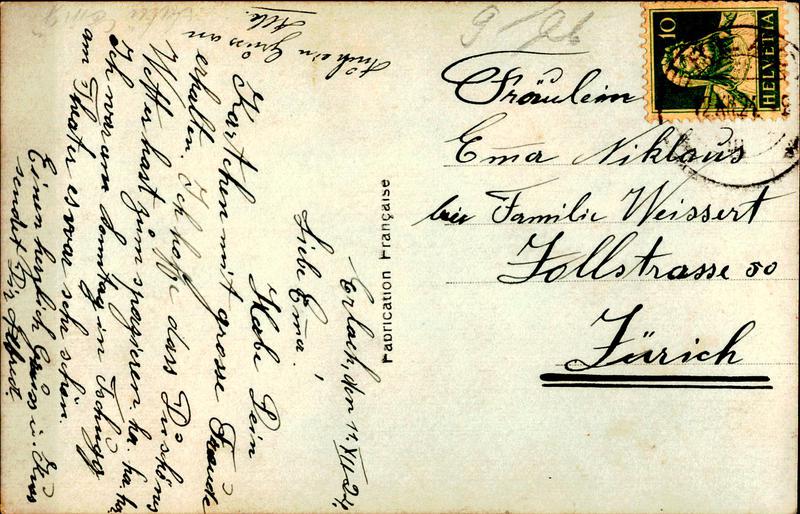 Erlach, den 11. XII. 24.
Liebe Ema!
Habe Dein
Kärtchen mit grosse Freude
erhalten. Ich hoffe dass Du schönes
Wetter hast zum spazieren. ha. ha. ha.
Ich war am Sonntag in Tschugg
am Theater es war sehr schön.
Einen herzlich Gruss u. Kuss
sendet Dir Alfred.
Auch ein Gruss an
Alle.
Fabrication Française
10
HELVETIA
Fräulein
Ema Niklaus
bei Familie Weissert
Zollstrasse 50
Zürich